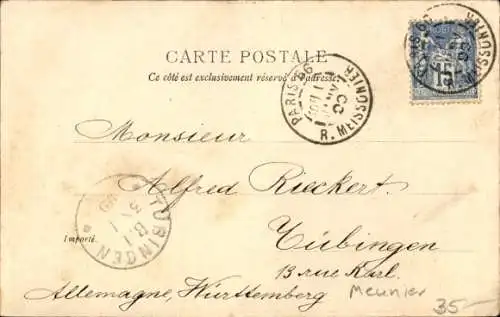 CARTE POSTALE
Ce côté est exclusivement réservé à l'adresse
PARIS 96
R. MEISSONIER
15
R. MEISSONIER
Monsieur
Alfred Rieckert.
TÜBINGEN
Importé.
Tübingen
13 rue Karl.
Allemagne, Württemberg
Meunier
35-